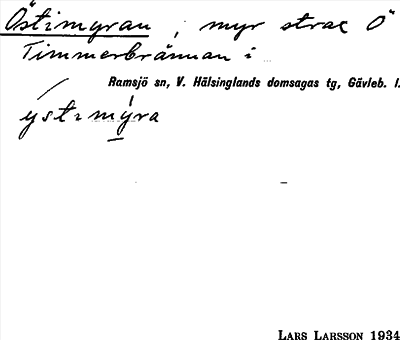 Östimyran , myr strax Ö
Timmerbrännan i
Ramsjö sn, V. Hälsinglands domsagas tg, Gävleb. l.
ystimýra
LARS LARSSON 1934